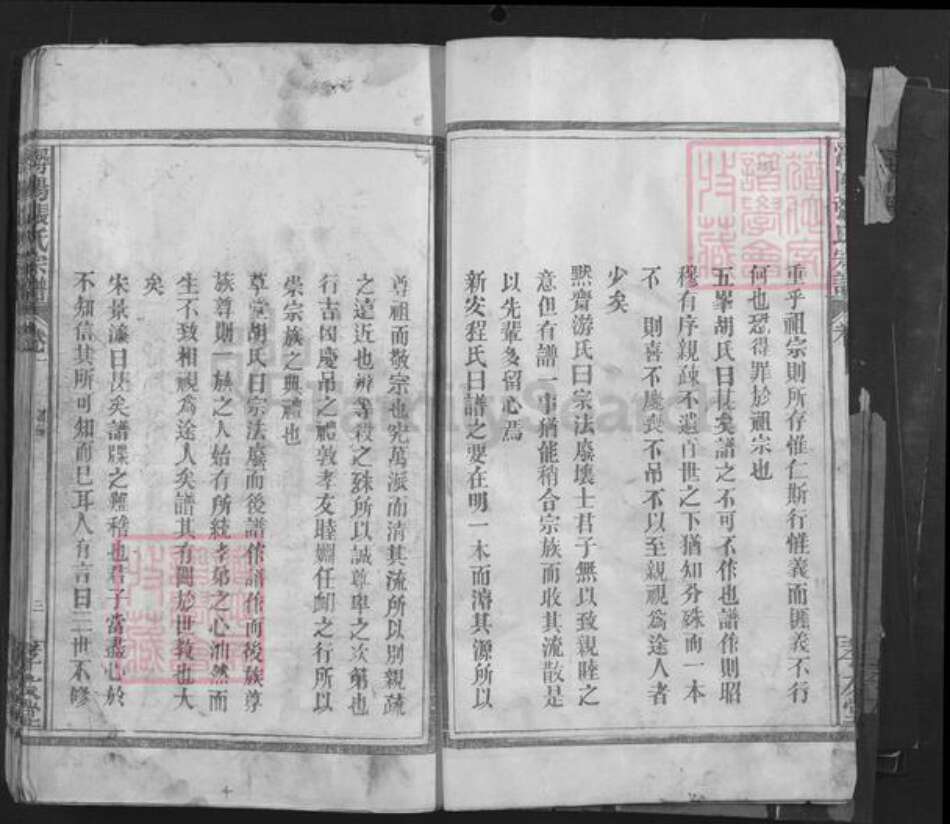 重乎祖宗則所存惟仁斯行惟義而匪義不行
何也恐得罪於祖宗也
五峯胡氏曰甚矣譜之不可不作也譜作則昭
穆有序親疎不遺百世之下猶知分殊而一本
不則喜不慶喪不吊不以至親視爲途人者
少矣
默齋游氏曰宗法廢壞士君子無以致親睦之
意但有譜一事猶能稍合宗族而收其流散是
以先輩多留心焉
新安程氏曰譜之要在明一本而濬其源所以
尊祖而敬宗也究萬派而清其流所以別親疏
之遠近也辨等殺之殊所以誠尊卑之次第也
行吉凶慶吊之禮敦孝友睦婣任卹之行所以
崇宗族之典禮也
草堂胡氏曰宗法廢而後譜作譜作而後族尊
族尊則一族之人始有所統孝弟之心油然而
生不致相視爲途人矣譜其有關於世教也大
矣
宋景濂曰甚矣譜牒之難稽也君子當盡心於
不知信其所可知而已耳人有言曰三世不修
張氏宗譜
卷一
三
FamilySearch